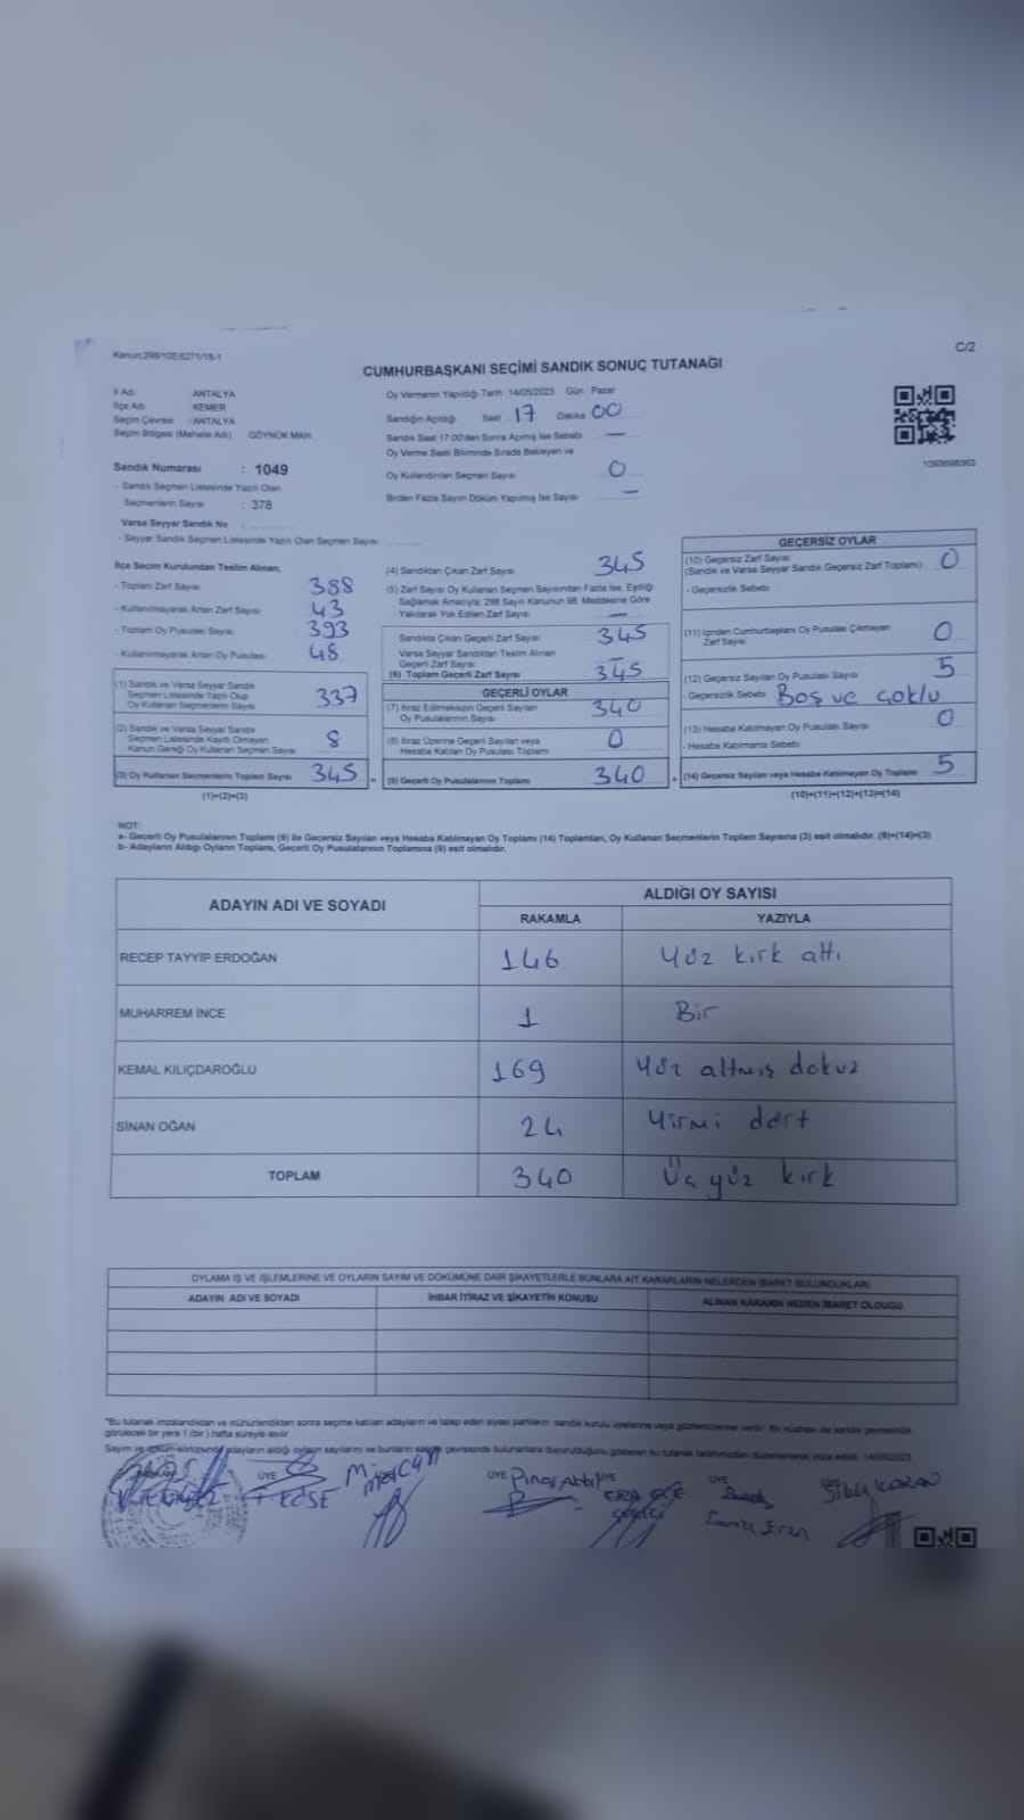 Kanun:298/10E/6271/16-1
C/2
CUMHURBAŞKANI SEÇİMİ SANDIK SONUÇ TUTANAĞI
İl Adı : ANTALYA
İlçe Adı : KEMER
Seçim Çevresi : ANTALYA
Seçim Bölgesi (Mahalle Adı) : GÖYNÜK MAH.
Oy Vermenin Yapıldığı Tarih: 14/05/2023 Gün : Pazar
Sandığın Açıldığı Saat : 17 Dakika 00
Sandık Saat 17:00'dan Sonra Açılmış İse Sebebi —
Oy Verme Saati Bitiminde Sırada Bekleyen ve
Oy Kullandırılan Seçmen Sayısı 0
Birden Fazla Sayım Döküm Yapılmış İse Sayısı —
Sandık Numarası : 1049
- Sandık Seçmen Listesinde Yazılı Olan
Seçmenlerin Sayısı : 378
Varsa Seyyar Sandık No
- Seyyar Sandık Seçmen Listesinde Yazılı Olan Seçmen Sayısı
İlçe Seçim Kurulundan Teslim Alınan;
- Toplam Zarf Sayısı 388
- Kullanılmayarak Artan Zarf Sayısı 43
- Toplam Oy Pusulası Sayısı 393
- Kullanılmayarak Artan Oy Pusulası 48
(1) Sandık ve Varsa Seyyar Sandık
Seçmen Listesinde Yazılı Olup
Oy Kullanan Seçmenlerin Sayısı 337
(2) Sandık ve Varsa Seyyar Sandık
Seçmen Listesinde Kayıtlı Olmayan
Kanun Gereği Oy Kullanan Seçmen Sayısı 8
(3) Oy Kullanan Seçmenlerin Toplam Sayısı 345
(1)+(2)=(3)
(4) Sandıktan Çıkan Zarf Sayısı 345
(5) Zarf Sayısı Oy Kullanan Seçmen Sayısından Fazla İse, Eşitliği
Sağlamak Amacıyla; 298 Sayılı Kanunun 98. Maddesine Göre
Yakılarak Yok Edilen Zarf Sayısı —
Sandıkta Çıkan Geçerli Zarf Sayısı 345
Varsa Seyyar Sandıktan Teslim Alınan
Geçerli Zarf Sayısı —
(6) Toplam Geçerli Zarf Sayısı 345
GEÇERLİ OYLAR
(7) İtiraz Edilmeksizin Geçerli Sayılan
Oy Pusulalarının Sayısı 340
(8) İtiraz Üzerine Geçerli Sayılan veya
Hesaba Katılan Oy Pusulası Toplamı 0
(9) Geçerli Oy Pusulalarının Toplamı 340
GEÇERSİZ OYLAR
(10) Geçersiz Zarf Sayısı
(Sandık ve Varsa Seyyar Sandık Geçersiz Zarf Toplamı) 0
- Geçersizlik Sebebi
(11) İçinden Cumhurbaşkanı Oy Pusulası Çıkmayan
Zarf Sayısı 0
(12) Geçersiz Sayılan Oy Pusulası Sayısı 5
- Geçersizlik Sebebi Boş ve çoklu
(13) Hesaba Katılmayan Oy Pusulası Sayısı 0
- Hesaba Katılmama Sebebi
(14) Geçersiz Sayılan veya Hesaba Katılmayan Oy Toplamı 5
(10)+(11)+(12)+(13)=(14)
NOT:
a- Geçerli Oy Pusulalarının Toplamı (9) ile Geçersiz Sayılan veya Hesaba Katılmayan Oy Toplamı (14) Toplamları, Oy Kullanan Seçmenlerin Toplam Sayısına (3) eşit olmalıdır. (9)+(14)=(3)
b- Adayların Aldığı Oyların Toplamı, Geçerli Oy Pusulalarının Toplamına (9) eşit olmalıdır.
ADAYIN ADI VE SOYADI
ALDIĞI OY SAYISI
RAKAMLA YAZIYLA
RECEP TAYYİP ERDOĞAN 146 Yüz kırk altı
MUHARREM İNCE 1 Bir
KEMAL KILIÇDAROĞLU 169 Yüz altmış dokuz
SİNAN OĞAN 24 Yirmi dört
TOPLAM 340 Üç yüz kırk
OYLAMA İŞ VE İŞLEMLERİNE VE OYLARIN SAYIM VE DÖKÜMÜNE DAİR ŞİKAYETLERLE BUNLARA AİT KARARLARIN NELERDEN İBARET BULUNDUKLARI
ADAYIN ADI VE SOYADI İHBAR İTİRAZ VE ŞİKAYETİN KONUSU ALINAN KARARIN NEDEN İBARET OLDUĞU
ÜYE KÖSE
ÜYE
ÜYE